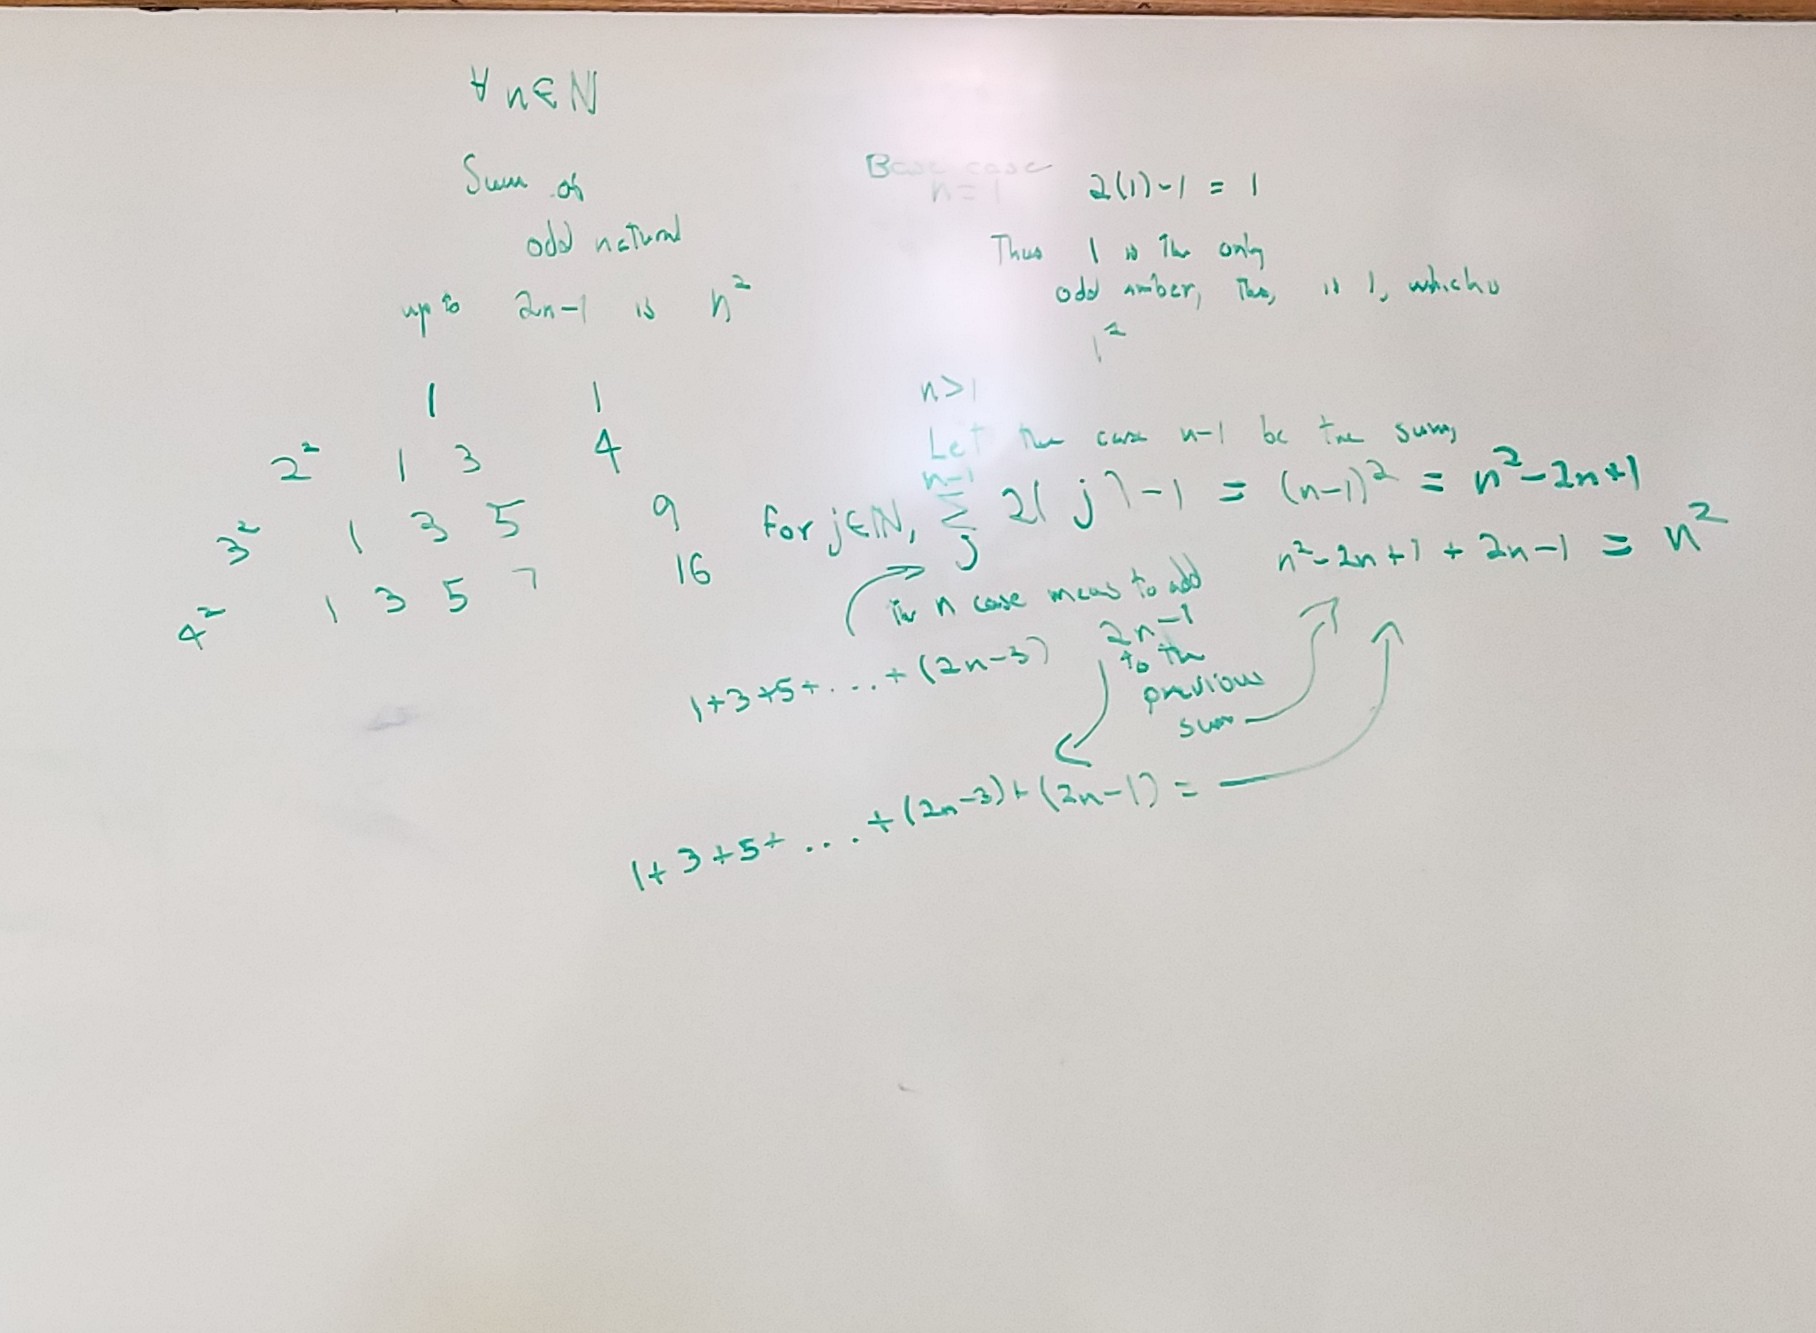 ∀ n ∈ ℕ
Sum of
odd natural
up to 2n-1 is n²
1 1
2² 1 3 4
3² 1 3 5 9
4² 1 3 5 7 16
Base case
n=1 2(1)-1 = 1
Thus 1 is the only
odd number, Thus, is 1, which is
1²
n>1
Let the case n-1 be the sum,
n-1
For j∈ℕ, Σ 2(j)-1 = (n-1)² = n²-2n+1
j
n²-2n+1 + 2n-1 = n²
The n case means to add
2n-1
to the
previous
sum
1+3+5+...+(2n-3)
1+3+5+....+(2n-3)+(2n-1) =